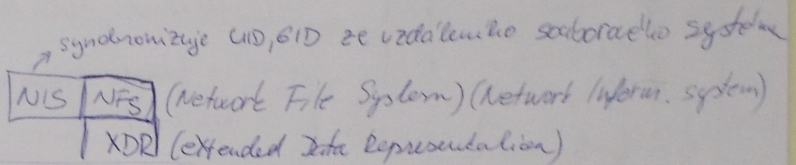 synchronizuje UID, GID ze vzdáleného souborového systému
NIS NFS (Network File System) (Network Inform. system)
XDR (eXtended Data Representation)